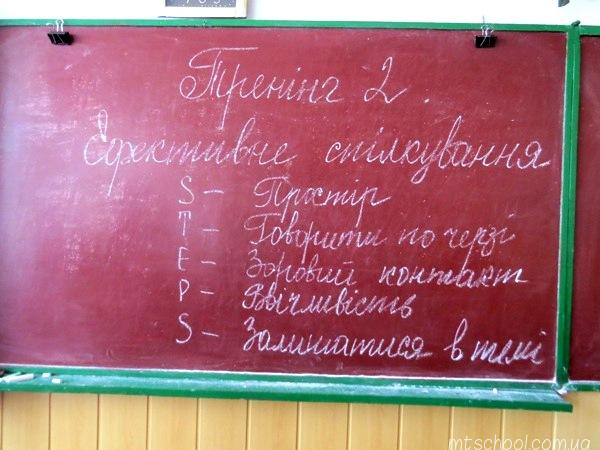 Тренінг 2.
Ефективне спілкування
S – Простір
T – Говорити по черзі
E – Зоровий контакт
P – Ввічливість
S – Залишатися в темі
mtschool.com.ua